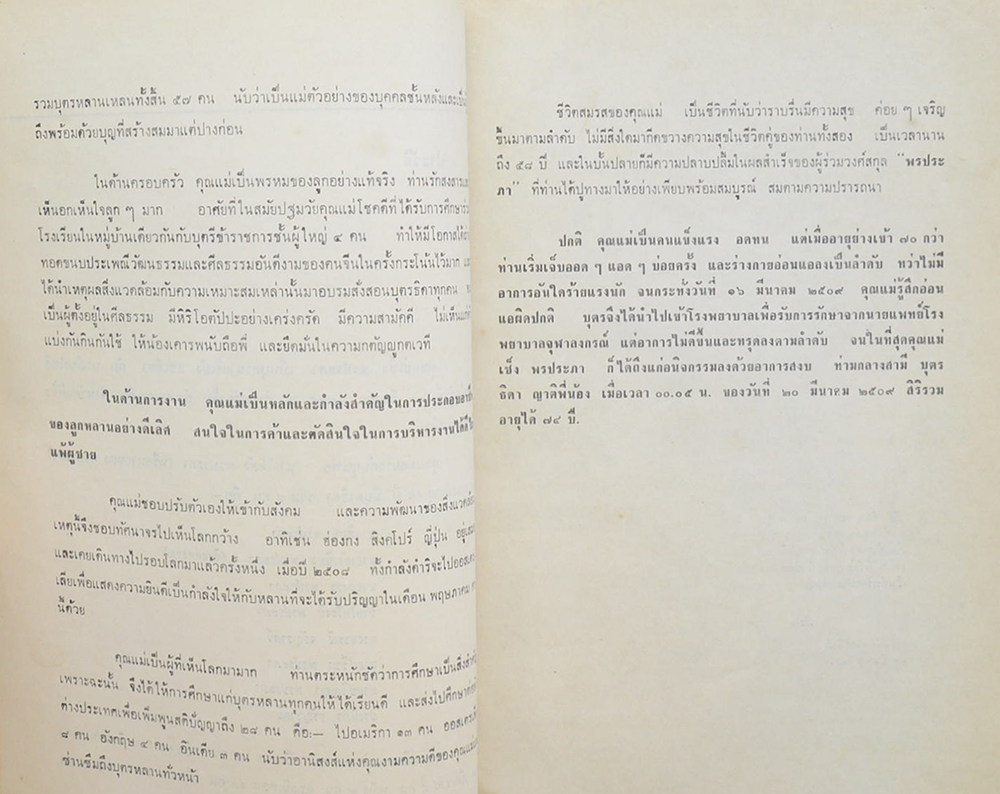 รวมบุตรหลานเหลนทั้งสิ้น ๕๗ คน นับว่าเป็นแม่ตัวอย่างของบุคคลชั้นหลังและเป็น
ถึงพร้อมด้วยบุญที่สร้างสมมาแต่ปางก่อน
ในด้านครอบครัว คุณแม่เป็นพรหมของลูกอย่างแท้จริง ท่านรักสงสารและ
เห็นอกเห็นใจลูก ๆ มาก อาศัยที่ในสมัยปฐมวัยคุณแม่โชคดีที่ได้รับการศึกษา
โรงเรียนในหมู่บ้านเดียวกันกับบุตรีข้าราชการชั้นผู้ใหญ่ ๔ คน ทำให้มีโอกาสได้
ทอดขนบประเพณีวัฒนธรรมและศีลธรรมอันดีงามของคนจีนในครั้งกระโน้นไว้มาก
ได้นำเหตุผลสิ่งแวดล้อมกับความเหมาะสมเหล่านั้นมาอบรมสั่งสอนบุตรธิดาทุกคน
เป็นผู้ตั้งอยู่ในศีลธรรม มีหิริโอตัปปะอย่างเคร่งครัด มีความสามัคคี ไม่เห็นแก่
แบ่งกันกินกันใช้ ให้น้องเคารพนับถือพี่ และยึดมั่นในความกตัญญูกตเวที
ในด้านการงาน คุณแม่เป็นหลักและกำลังสำคัญในการประกอบ
ของลูกหลานอย่างดีเลิศ สนใจในการค้าและตัดสินใจในการบริหารงานได้ดี
แพ้ผู้ชาย
คุณแม่ชอบปรับตัวเองให้เข้ากับสังคม และความพัฒนาของสิ่งแวดล้อม
เหตุนี้จึงชอบทัศนาจรไปเห็นโลกกว้าง อาทิเช่น ฮ่องกง สิงคโปร์ ญี่ปุ่น อยู่เสมอ
และเคยเดินทางไปรอบโลกมาแล้วครั้งหนึ่ง เมื่อปี ๒๕๐๘ ทั้งกำลังดำริจะไปออสเตร
เลียเพื่อแสดงความยินดีเป็นกำลังใจให้กับหลานที่จะได้รับปริญญาในเดือน พฤษภาคม
นี้ด้วย
คุณแม่เป็นผู้ที่เห็นโลกมามาก ท่านตระหนักชัดว่าการศึกษาเป็นสิ่งสำคัญ
เพราะฉะนั้น จึงได้ให้การศึกษาแก่บุตรหลานทุกคนให้ได้เรียนดี และส่งไปศึกษา
ต่างประเทศเพื่อเพิ่มพูนสติปัญญาถึง ๒๘ คน คือ:— ไปอเมริกา ๑๓ คน ออสเตรเลีย
๘ คน อังกฤษ ๔ คน อินเดีย ๓ คน นับว่าอานิสงส์แห่งคุณงามความดีของคุณแม่
ซ่านซึมถึงบุตรหลานทั่วหน้า
ชีวิตสมรสของคุณแม่ เป็นชีวิตที่นับว่าราบรื่นมีความสุข ค่อย ๆ เจริญ
ขึ้นมาตามลำดับ ไม่มีสิ่งใดมากีดขวางความสุขในชีวิตคู่ของท่านทั้งสอง เป็นเวลานาน
ถึง ๕๘ ปี และในบั้นปลายก็มีความปลาบปลื้มในผลสำเร็จของผู้ร่วมวงศ์สกุล "พรประ
ภา" ที่ท่านได้ปูทางมาให้อย่างเพียบพร้อมสมบูรณ์ สมตามความปรารถนา
ปกติ คุณแม่เป็นคนแข็งแรง อดทน แต่เมื่ออายุย่างเข้า ๗๐ กว่า
ท่านเริ่มเจ็บออด ๆ แอด ๆ บ่อยครั้ง และร่างกายอ่อนแอลงเป็นลำดับ ทว่าไม่มี
อาการอันใดร้ายแรงนัก จนกระทั่งวันที่ ๑๖ มีนาคม ๒๕๐๙ คุณแม่รู้สึกอ่อน
แอผิดปกติ บุตรจึงได้นำไปเข้าโรงพยาบาลเพื่อรับการรักษาจากนายแพทย์โรง
พยาบาลจุฬาลงกรณ์ แต่อาการไม่ดีขึ้นและทรุดลงตามลำดับ จนในที่สุดคุณแม่
เช็ง พรประภา ก็ได้ถึงแก่อนิจกรรมลงด้วยอาการสงบ ท่ามกลางสามี บุตร
ธิดา ญาติพี่น้อง เมื่อเวลา ๐๐.๐๕ น. ของวันที่ ๒๐ มีนาคม ๒๕๐๙ สิริรวม
อายุได้ ๗๔ ปี.